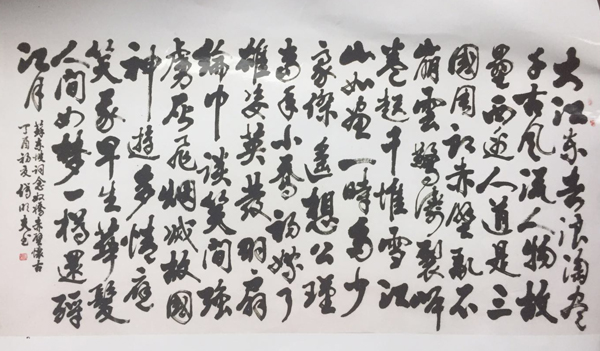 大江东去浪淘尽
千古风流人物故
壘西边人道是三
國周郎赤壁亂石
崩雲驚濤裂岸
卷起千堆雪江
山如画一時多少
豪傑遥想公瑾
當年小喬初嫁了
雄姿英發羽扇
綸巾談笑間强
虜灰飛烟滅故國
神遊多情應
笑我早生華髮
人間如夢一樽還酹
江月
蘇東坡词念奴嬌赤壁懷古
丁酉初夏